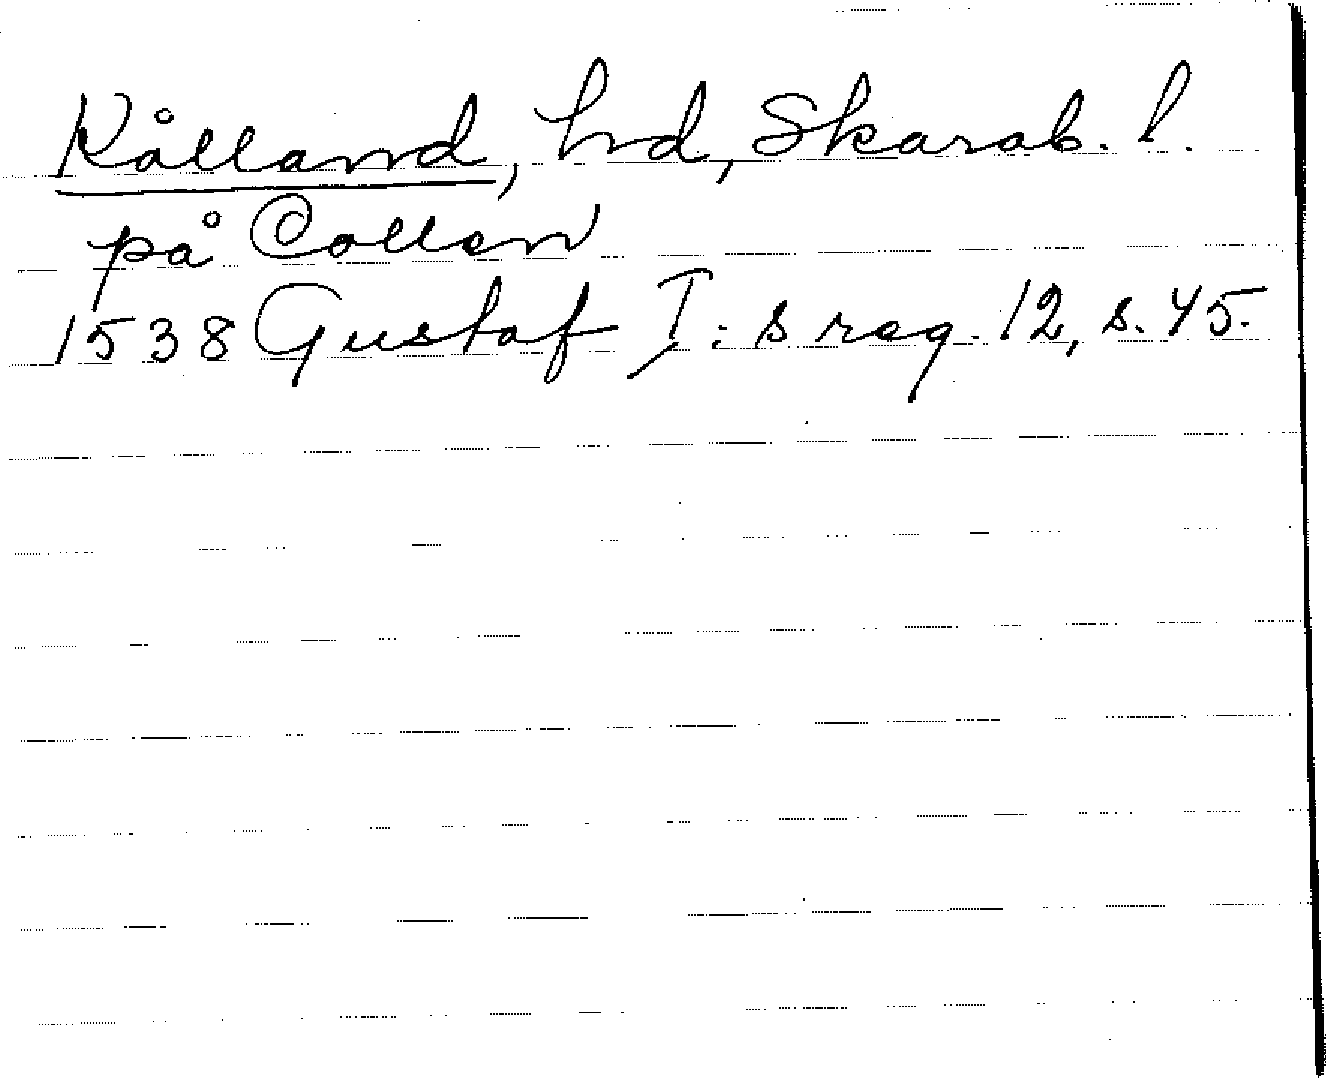 Kålland, hd, Skarab. l.
på Collen
1538 Gustaf I:s reg. 12, s. 45.